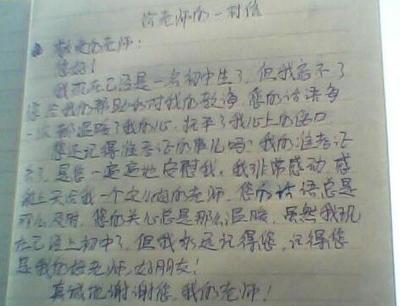 给老师的一封信
敬爱的老师：
您好！
我现在已经是一名初中生了，但我忘不了
您给我的帮助和对我的教诲，您的话语每
一次都温暖了我的心，抚平了我心上的伤口
您还记得准考证的事儿吗？我的准考证
丢了，是您一遍遍地安慰我，我非常感动，感
谢上天给我一个这么好的老师，您的话语总是
那么及时，您的关心总是那么温暖，虽然我现
在已经上初中了，但我永远记得您，记得您
是我的好老师，好朋友！
真诚地谢谢您，我的老师！